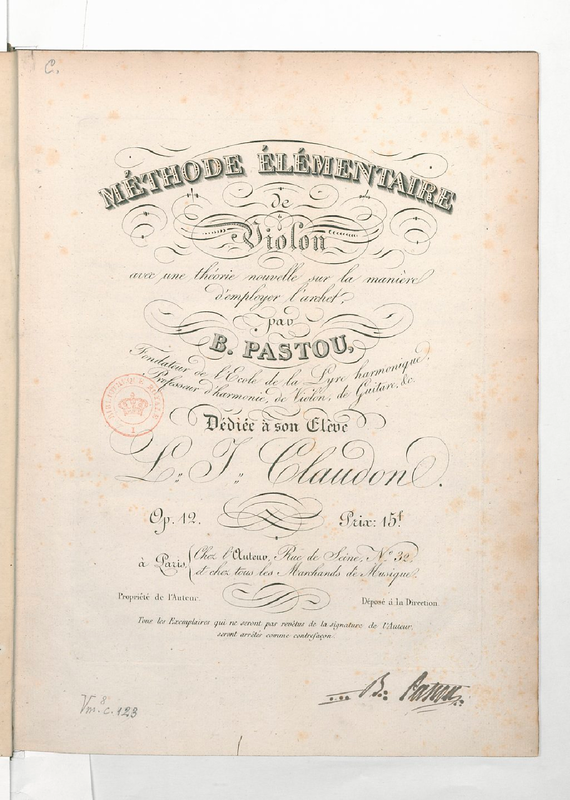 C.
MÉTHODE ÉLÉMENTAIRE
de
Violon
avec une théorie nouvelle sur la manière
d'employer l'archet,
par
B. PASTOU,
Fondateur de l'Ecole de la Lyre harmonique,
Professeur d'harmonie, de Violon, de Guitare, &c.
Dédiée à son Elève
L. J. Claudon.
Op. 12. Prix: 15f
à Paris, Chez l'Auteur, Rue de Seine, No. 32,
et chez tous les Marchands de Musique.
Propriété de l'Auteur. Déposé à la Direction
Tous les Exemplaires qui ne seront pas revêtus de la signature de l'Auteur,
seront arrêtés comme contrefaçon.
B. Pastou
Vm.8 c. 123